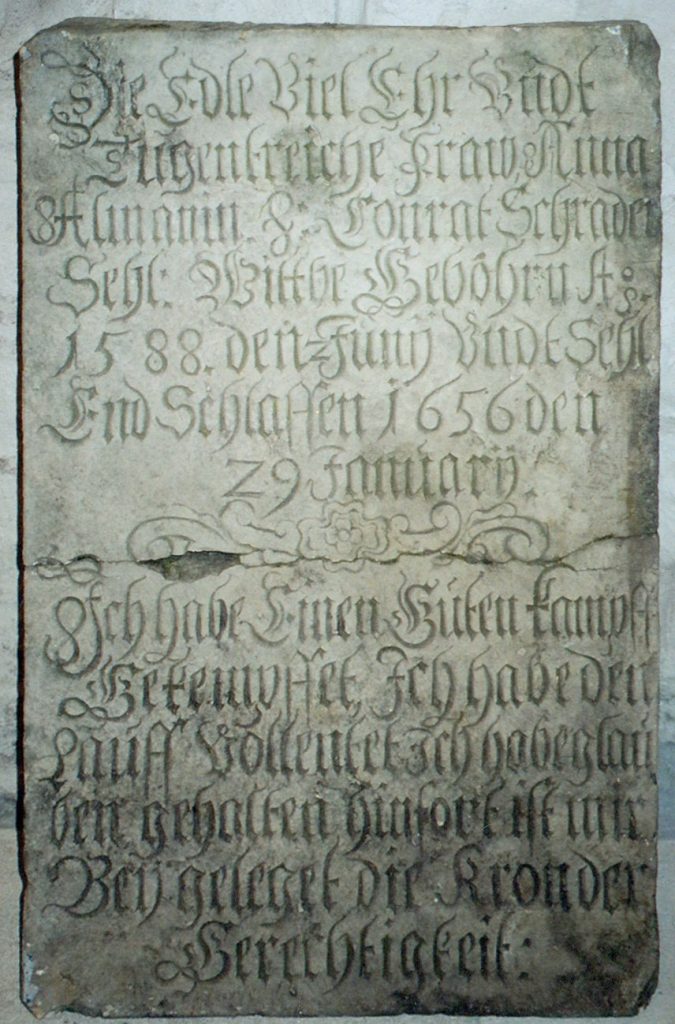 Die Edle Viel Ehr Vndt
Tugentreiche Fraw, Anna
Almanin. H: Conrat Schrader
Sehl: Wittbe Geböhrn Aͦ:
1588. den 2 Junij Vndt Sehl
End Schlaffen 1656 den
29 January.
Ich habe Einen Guten kampff
Gekempffet, Ich habe den
Lauff Vollentet Ich habe glau
ben gehalten hinfort ist mir
Beÿ geleget die Kron der
Gerechtigkeit: